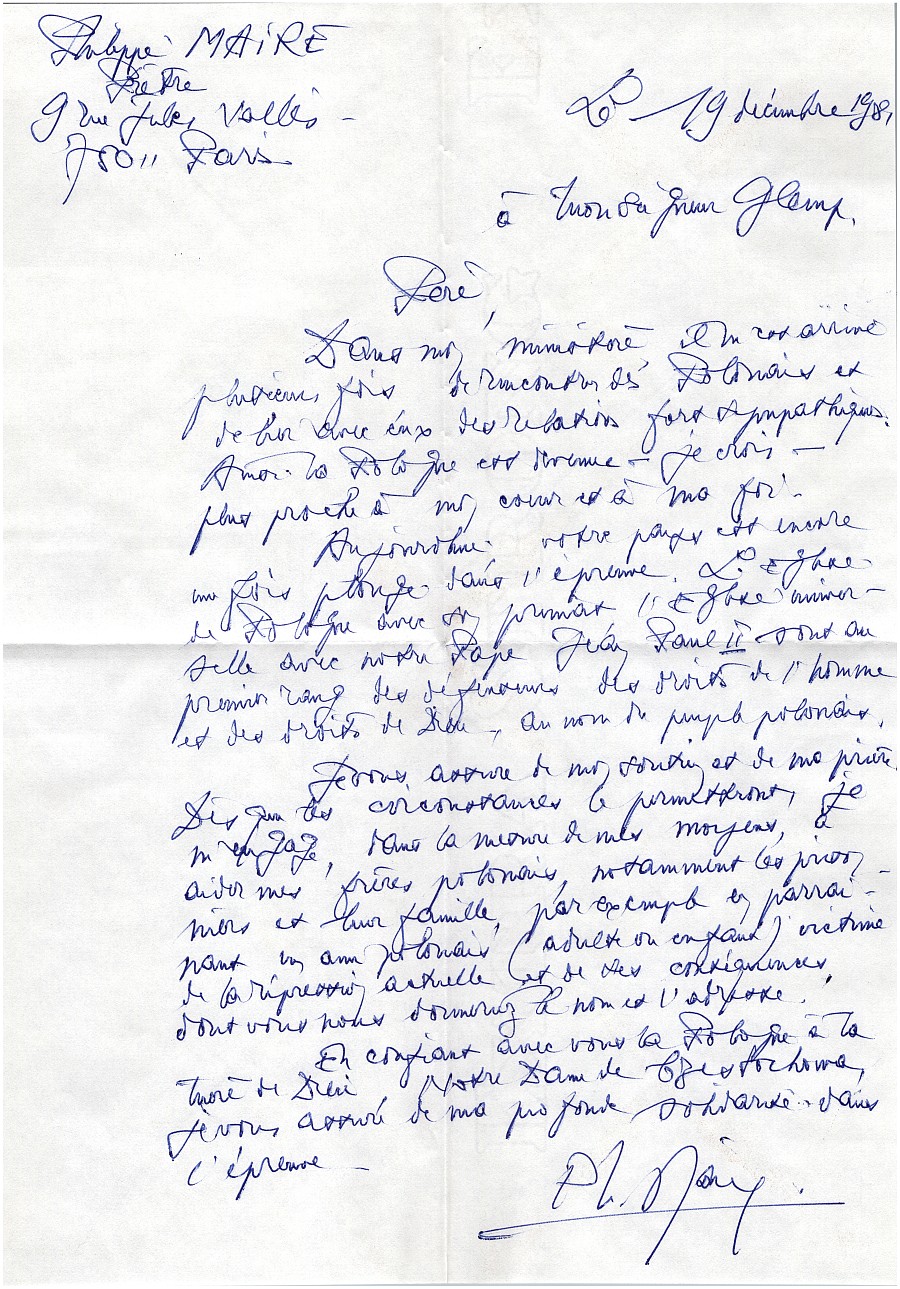 Philippe MAIRE
Prêtre
9 rue Jules Vallès
75011 Paris
Le 19 décembre 1981
à Monseigneur Glemp.
Père,
Dans mon ministère il m'est arrivé
plusieurs fois de rencontrer des Polonais et
de lier avec eux des relations fort sympathiques.
Ainsi la Pologne est devenue - je crois -
plus proche à mon coeur et à ma foi.
Aujourd'hui votre pays est encore
une fois plongé dans l'épreuve. L'Eglise
de Pologne avec son primat l'Eglise univer-
selle avec notre Pape Jean Paul II sont au
premier rang des défenseurs des droits de l'homme
et des droits de Dieu, au nom du peuple polonais.
Je vous assure de mon soutien et de ma prière.
Dès que les circonstances le permettront, je
m'engage, dans la mesure de mes moyens, à
aider mes frères polonais, notamment les prison-
niers et leur famille, par exemple en parrai-
nant un ami polonais (adulte ou enfant) victime
de la répression actuelle et de ses conséquences
dont vous nous donnerez le nom et l'adresse.
En confiant avec vous la Pologne à la
Mère de Dieu Notre Dame de Częstochowa,
je vous assure de ma profonde solidarité dans
l'épreuve -
Ph. Maire